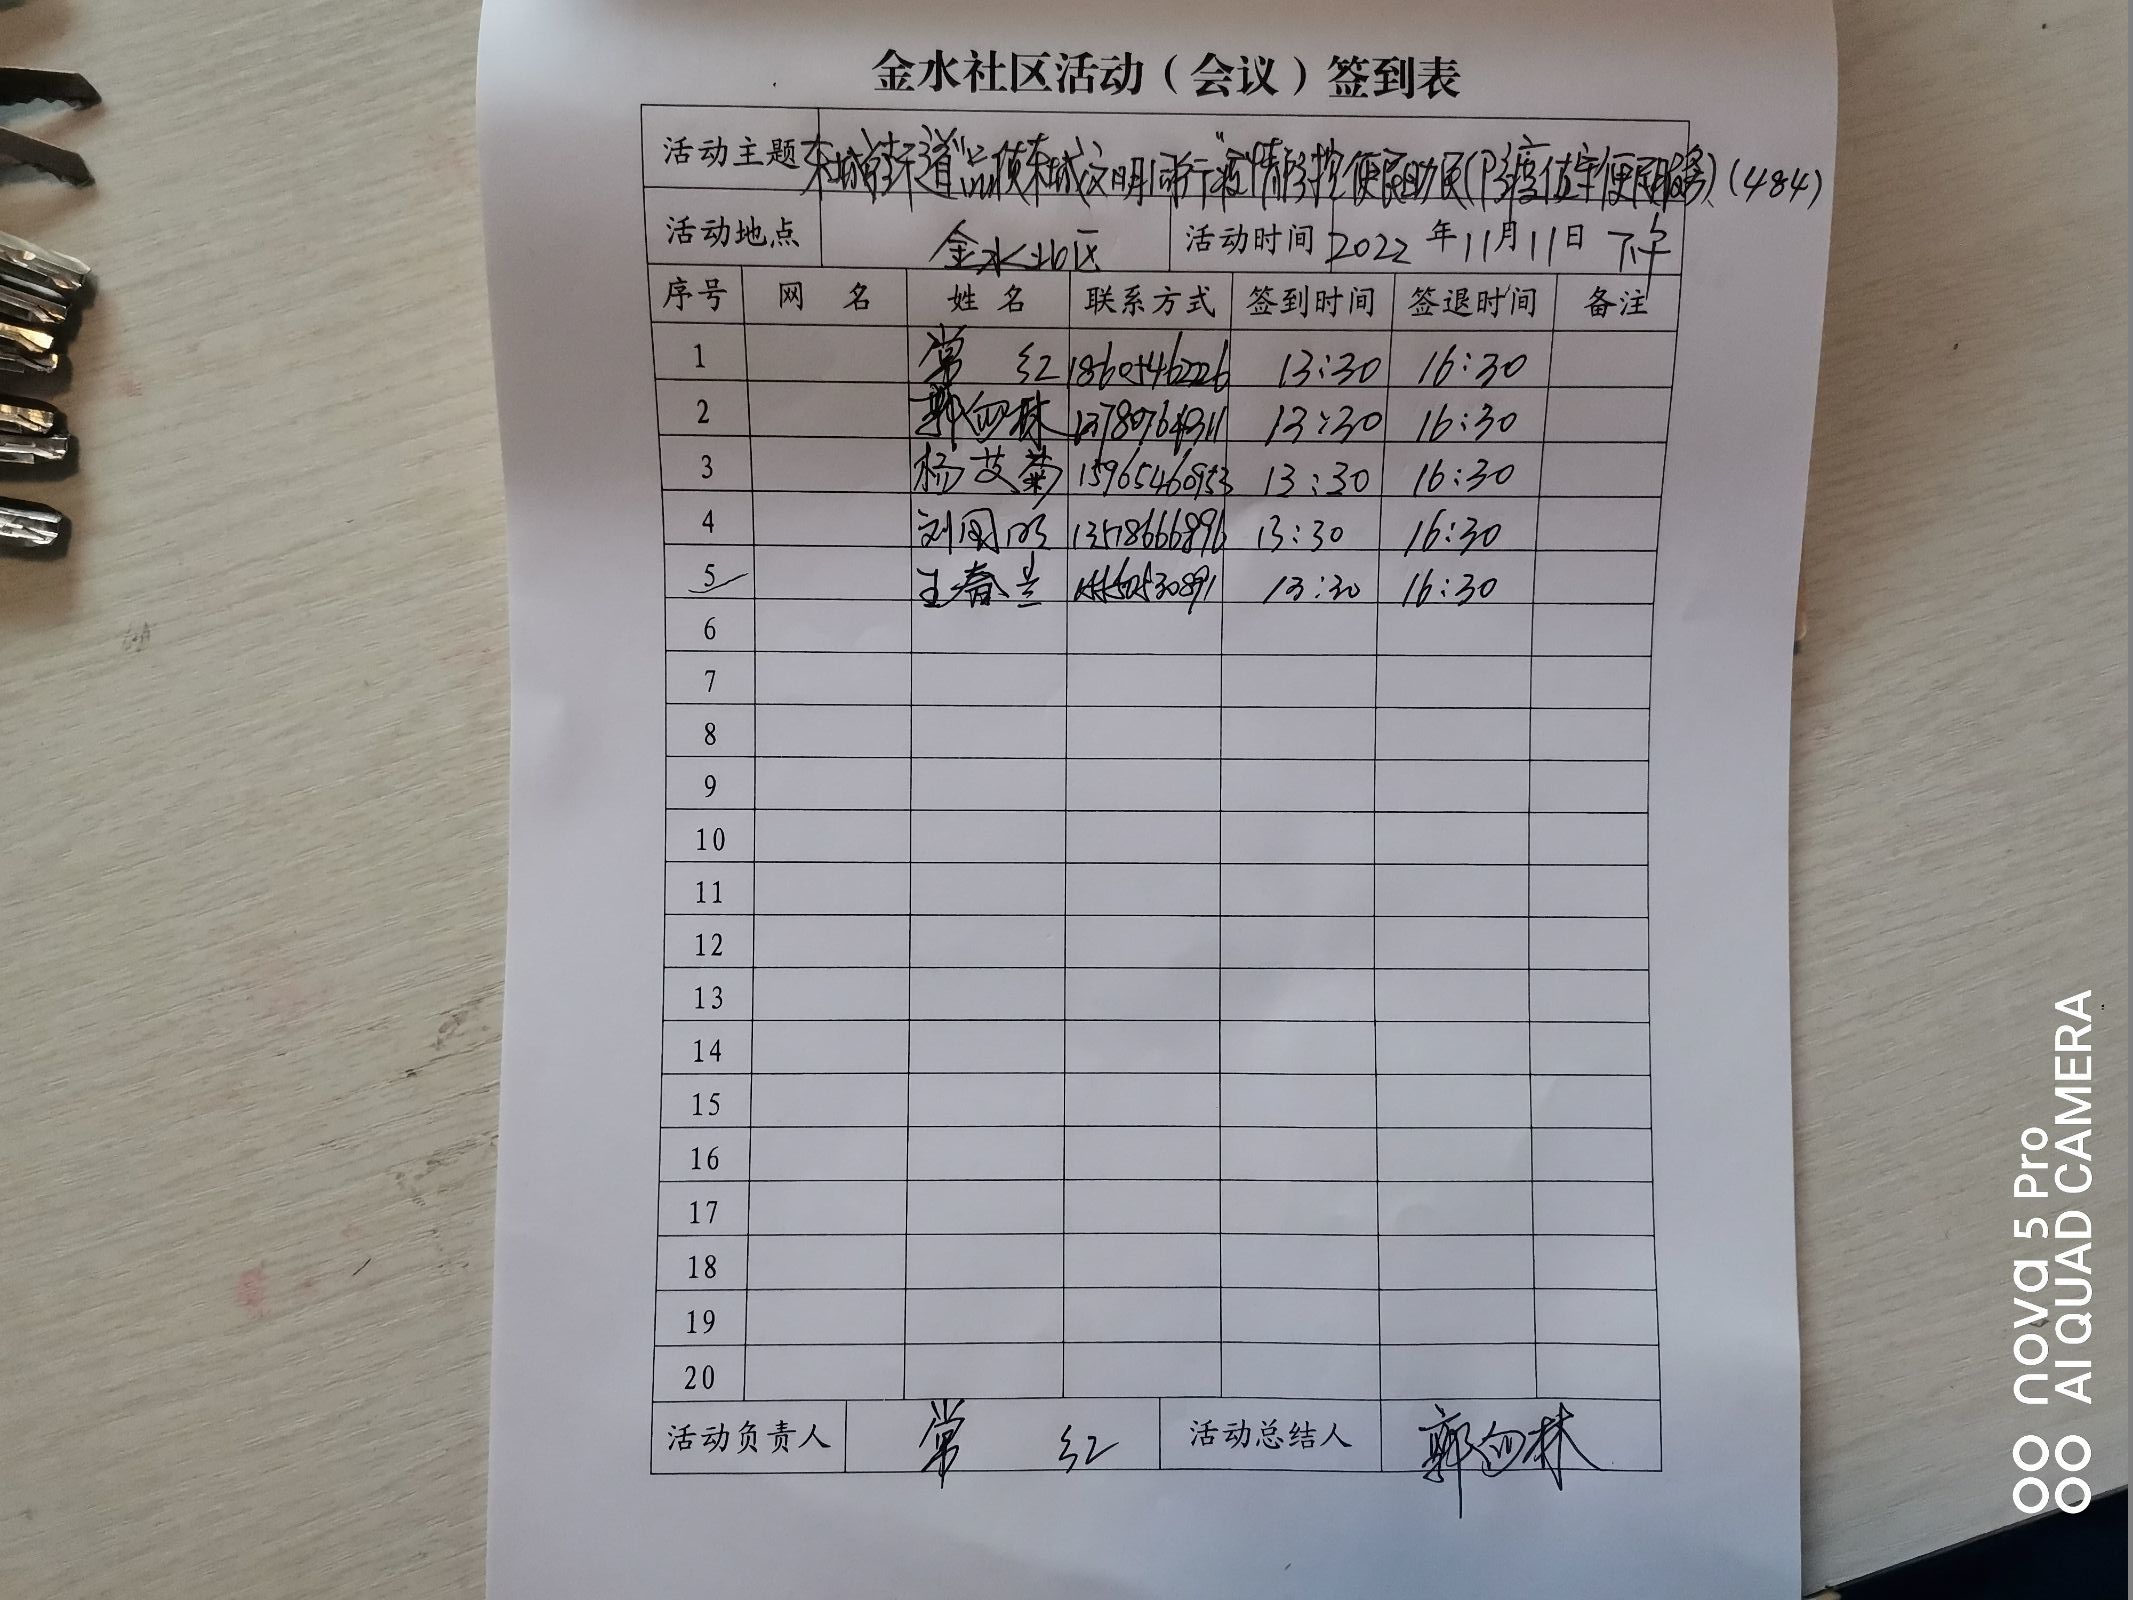 金水社区活动（会议）签到表
活动主题 东城街道"品质东城文明同行"疫情防控便民助民(防疫值守便民服务)(484)
活动地点 金水北区 活动时间 2022年11月11日 下午
序号 网 名 姓 名 联系方式 签到时间 签退时间 备注
1 常 红 13:30 16:30
2 郭向林 13780764311 13:30 16:30
3 杨艾菊 15965460953 13:30 16:30
4 刘国明 13:30 16:30
5 王春兰 13:30 16:30
6
7
8
9
10
11
12
13
14
15
16
17
18
19
20
活动负责人 常 红 活动总结人 郭向林
nova 5 Pro
AI QUAD CAMERA